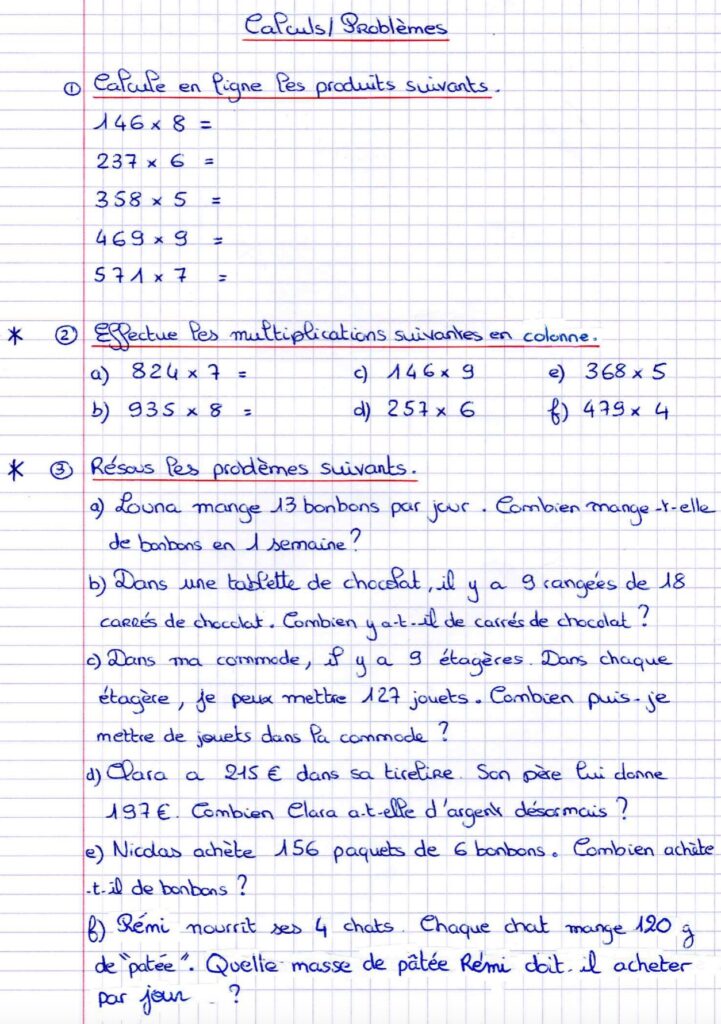 Calculs/Problèmes
① Calcule en ligne les produits suivants.
146 × 8 =
237 × 6 =
358 × 5 =
469 × 9 =
571 × 7 =
* ② Effectue les multiplications suivantes en colonne.
a) 824 × 7 = c) 146 × 9 e) 368 × 5
b) 935 × 8 = d) 257 × 6 f) 479 × 4
* ③ Résous les problèmes suivants.
a) Louna mange 13 bonbons par jour. Combien mange-t-elle
de bonbons en 1 semaine ?
b) Dans une tablette de chocolat, il y a 9 rangées de 18
carrés de chocolat. Combien y a-t-il de carrés de chocolat ?
c) Dans ma commode, il y a 9 étagères. Dans chaque
étagère, je peux mettre 127 jouets. Combien puis-je
mettre de jouets dans la commode ?
d) Clara a 215 € dans sa tirelire. Son père lui donne
197 €. Combien Clara a-t-elle d'argent désormais ?
e) Nicolas achète 156 paquets de 6 bonbons. Combien achète
-t-il de bonbons ?
f) Rémi nourrit ses 4 chats. Chaque chat mange 120 g
de "patée". Quelle masse de pâtée Rémi doit-il acheter
par jour ?